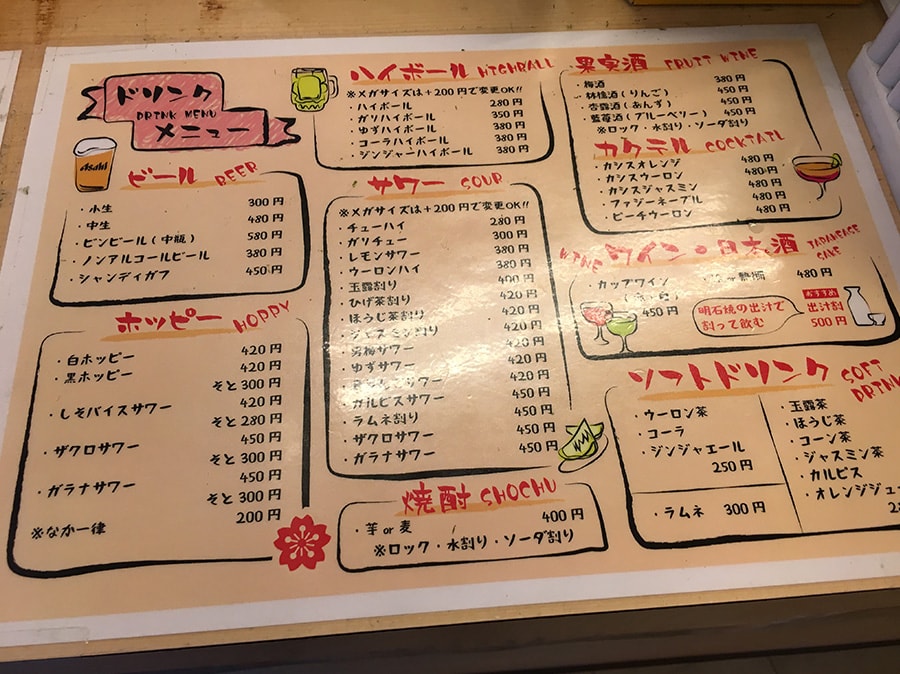 ドリンク
DRINK MENU
メニュー
Asahi
ビール BEER
・小生 300円
・中生 480円
・ビンビール(中瓶) 580円
・ノンアルコールビール 380円
・シャンディガフ 450円
ホッピー HOPPY
・白ホッピー 420円
・黒ホッピー 420円
そと300円
・しそバイスサワー 420円
そと280円
・ザクロサワー 450円
そと300円
・ガラナサワー 450円
そと300円
※なか一律 200円
ハイボール HIGHBALL
※メガサイズは+200円で変更OK!!
・ハイボール 280円
・ガリハイボール 350円
・ゆずハイボール 380円
・コーラハイボール 380円
・ジンジャーハイボール 380円
サワー SOUR
※メガサイズは+200円で変更OK!!
・チューハイ 280円
・ガリチュー 300円
・レモンサワー 380円
・ウーロンハイ 380円
・玉露割り 400円
・ひげ茶割り 420円
・ほうじ茶割り 420円
・ジャスミン割り 420円
・男梅サワー 420円
・ゆずサワー 420円
サワー 420円
・カルピスサワー 420円
・ラムネ割り 450円
・ザクロサワー 450円
・ガラナサワー 450円
焼酎 SHOCHU
・芋or麦 400円
※ロック・水割り・ソーダ割り
果実酒 FRUIT WINE
・梅酒 380円
・林檎酒(りんご) 450円
・杏露酒(あんず) 450円
・藍苺酒(ブルーベリー) 450円
※ロック・水割り・ソーダ割り
カクテル COCKTAIL
・カシスオレンジ 480円
・カシスウーロン 480円
・カシスジャスミン 480円
・ファジーネーブル 480円
・ピーチウーロン 480円
WINE ワイン・日本酒 JAPANEASE SAKE
・カップワイン 450円
480円
明石焼の出汁で
割って飲む
おすすめ
出汁割
500円
ソフトドリンク SOFT DRINK
・ウーロン茶
・コーラ
・ジンジャエール
250円
・ラムネ 300円
・玉露茶
・ほうじ茶
・コーン茶
・ジャスミン茶
・カルピス
・オレンジジュー